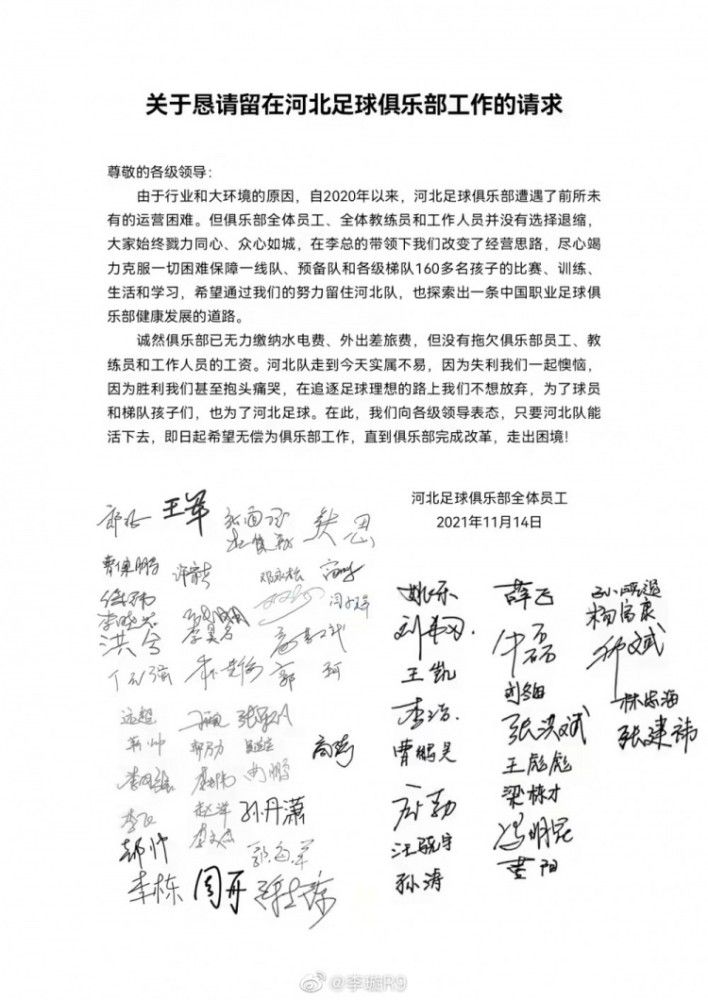 关于恳请留在河北足球俱乐部工作的请求
尊敬的各级领导：
由于行业和大环境的原因，自2020年以来，河北足球俱乐部遭遇了前所未
有的运营困难。但俱乐部全体员工、全体教练员和工作人员并没有选择退缩，
大家始终戮力同心、众心如城，在李总的带领下我们改变了经营思路，尽心竭
力克服一切困难保障一线队、预备队和各级梯队160多名孩子的比赛、训练、
生活和学习，希望通过我们的努力留住河北队，也探索出一条中国职业足球俱
乐部健康发展的道路。
诚然俱乐部已无力缴纳水电费、外出差旅费，但没有拖欠俱乐部员工、教
练员和工作人员的工资。河北队走到今天实属不易，因为失利我们一起懊恼，
因为胜利我们甚至抱头痛哭，在追逐足球理想的路上我们不想放弃，为了球员
和梯队孩子们，也为了河北足球。在此，我们向各级领导表态，只要河北队能
活下去，即日起希望无偿为俱乐部工作，直到俱乐部完成改革，走出困境！
河北足球俱乐部全体员工
2021年11月14日
王军
洪兮
郭珂
孙丹潇
李栋
周开
姚乐
王凯
李浩
曹鹏昊
孙涛
薛飞
牛磊
张洪斌
王彪彪
梁栋才
冯明昆
黄阳
杨富康
林志海
张建祎
@李璇R9